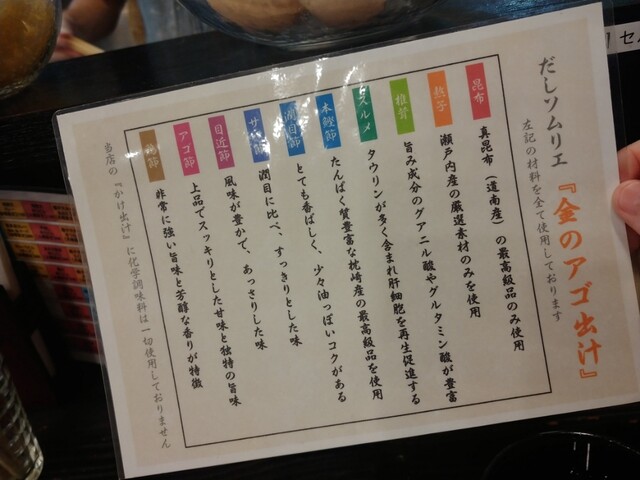 だしソムリエ『金のアゴ出汁』
左記の材料を全て使用しております
昆布 真昆布(道南産)の最高級品のみ使用
熬子 瀬戸内産の厳選素材のみを使用
椎茸 旨み成分のグアニル酸やグルタミン酸が豊富
スルメ タウリンが多く含まれ肝細胞を再生促進する
本鰹節 たんぱく質豊富な枕崎産の最高級品を使用
潤目節 とても香ばしく、少々油っぽいコクがある
サバ節 潤目に比べ、すっきりとした味
目近節 風味が豊かで、あっさりした味
アゴ節 上品でスッキリとした甘味と独特の旨味
節 非常に強い旨味と芳醇な香りが特徴
当店の『かけ出汁』に化学調味料は一切使用しておりません